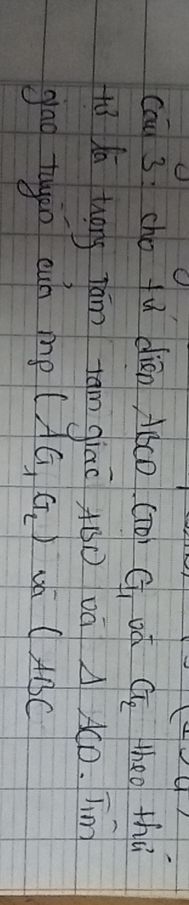 Câu 3: cho tứ diện ABCD. Gọi G₁ và G₂ theo thứ
tự là trọng tâm tam giác ABD và Δ ACD. Tìm
giao tuyến của mp (AG₁G₂) và (ABC